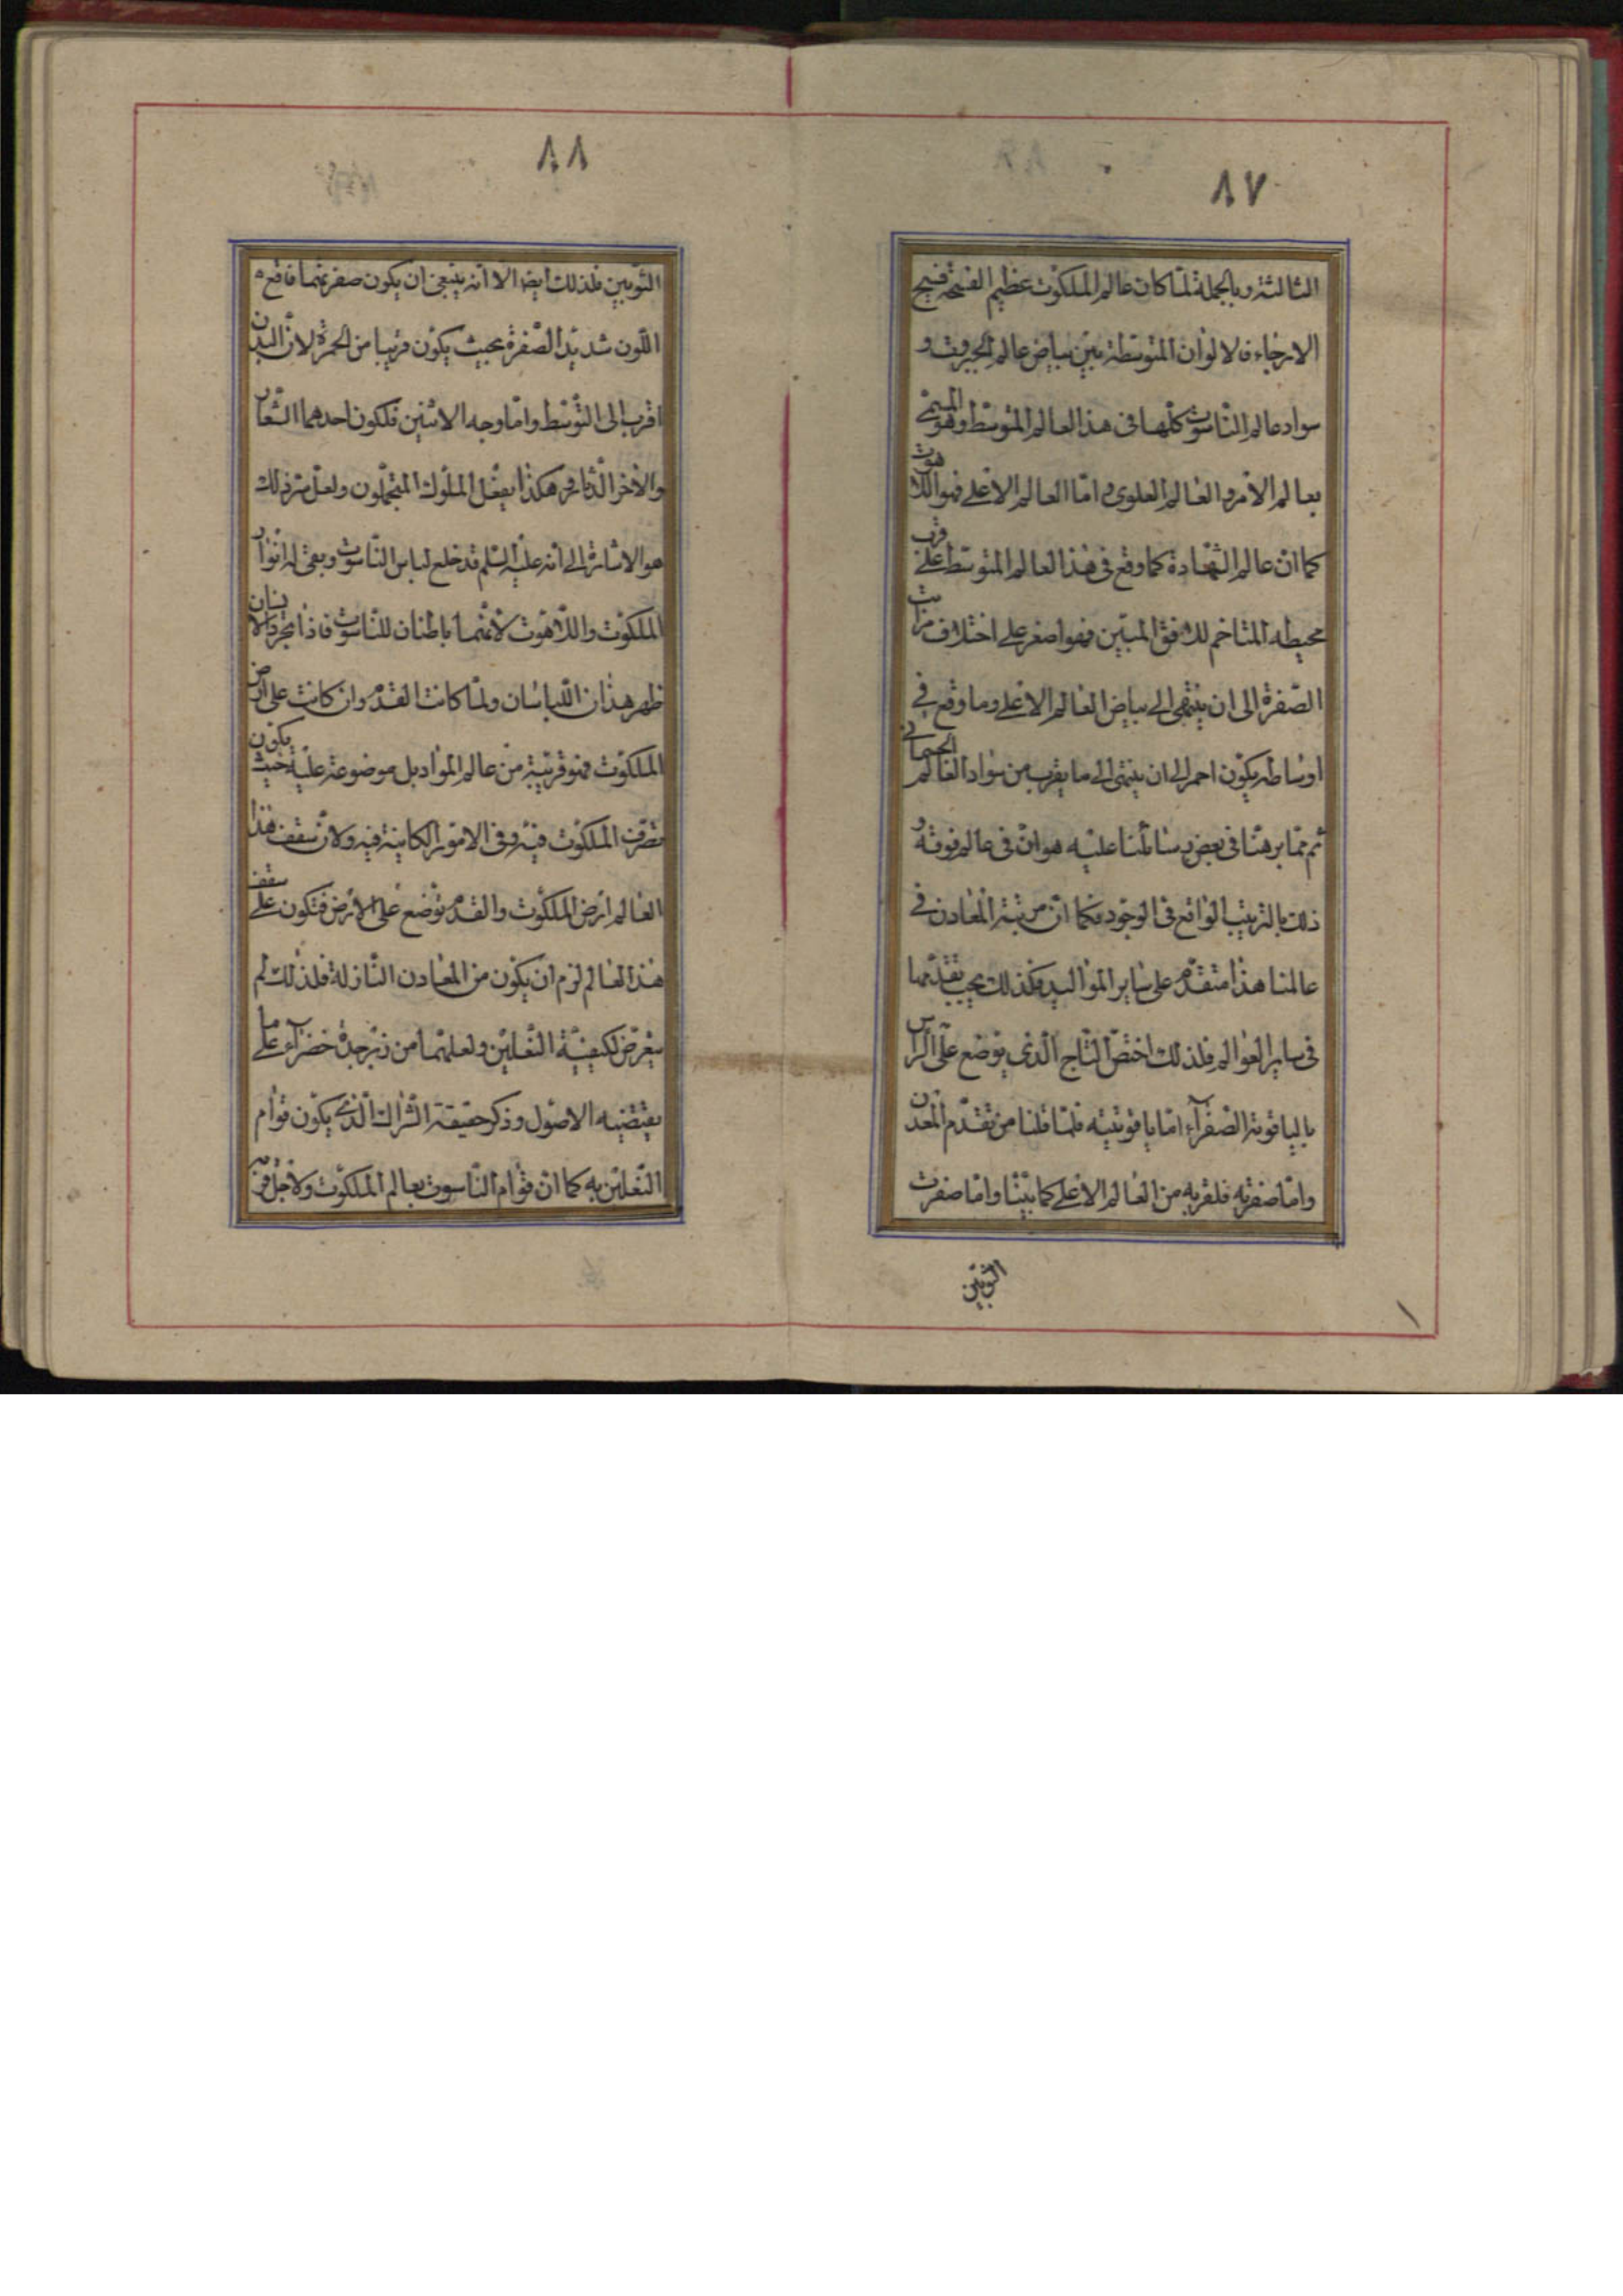 ٨٧
الثالثة وبالجملة لمّا كان عالم الملكوت عظيم الفسحة فسيح
الارجاء فالالوان المتوسّطة بين بياض عالم الجبروت و
سواد عالم النّاسوت كلّها فى هذا العالم المتوسّط وهو المسمّى
بعالم الأمر والعالم العلوى امّا العالم الاعلى فهو اللاهوت
كما انّ عالم الشّهادة كما وقع فى هذا العالم المتوسّط على قرب
محيطه المتاخم للافق المبين فهو اصفر على اختلاف مراتب
الصّفرة الى ان ينتهى الى بياض العالم الاعلى وما وقع فى
اوساطه يكون احمر الى ان ينتهى الى ما يقرب من سواد العالم الجسمانى
ثم ممّا برهنّا فى بعض رسائلنا عليه هو انّ فى عالم فوقه و
ذلك بالترتيب الواقع فى الوجود فكما انّ مرتبة المعادن فى
عالمنا هذا متقدّم على ساير المواليد فكذلك يجب تقدّمها
فى ساير العوالم فلذلك اختصّ التّاج الّذى يوضع على الرّأس
بالياقوتة الصّفرآء امّا ياقوتيّته فلما قلنا من تقدّم المعدن
وامّا صفرته فلقربه من العالم الاعلى كما بيّنّا وامّا صفرت
الثّوبين
٨٨
الثّوبين فلذلك ايضا الا انّه ينبغى ان يكون صفرتهما فاقع
اللّون شديد الصّفرة بحيث يكون قريبا من الحمرة لانّ البدن
اقرب الى التّوسّط وامّا وجه الاثنين فلكون احدهما الشّعار
والأخر الدّثار وهكذا يفعل الملوك المتجمّلون ولعلّ سرّ ذلك
هو الاشارة الى انّه عليه السّلم قد خلع لباس النّاسوت وبقى له انوار
الملكوت واللّاهوت لأنّهما باطنان للنّاسوت فاذا تجرّد الانسان
ظهر هذان اللّباسان ولمّا كانت القدم وان كانت على ارض
الملكوت فهو قريبة من عالم الموادّ بل موضوعة عليه حيث يكون
تصرّف الملكوت فيه وفى الامور الكاينة فيه ولانّ سقف هذا
العالم ارض الملكوت والقدم توضع على الارض فتكون على سقف
هذا العالم لزم ان يكون من المعادن النّازلة فلذلك لم
يعرض لكيفيّة النّعلين ولعلّهما من زبرجدة خضرآء على ما
يقتضيه الاصول وذكر حقيقة الشّراك الّذى يكون قوام
النّعلين به كما انّ قوام النّاسوت بعالم الملكوت ولأجل